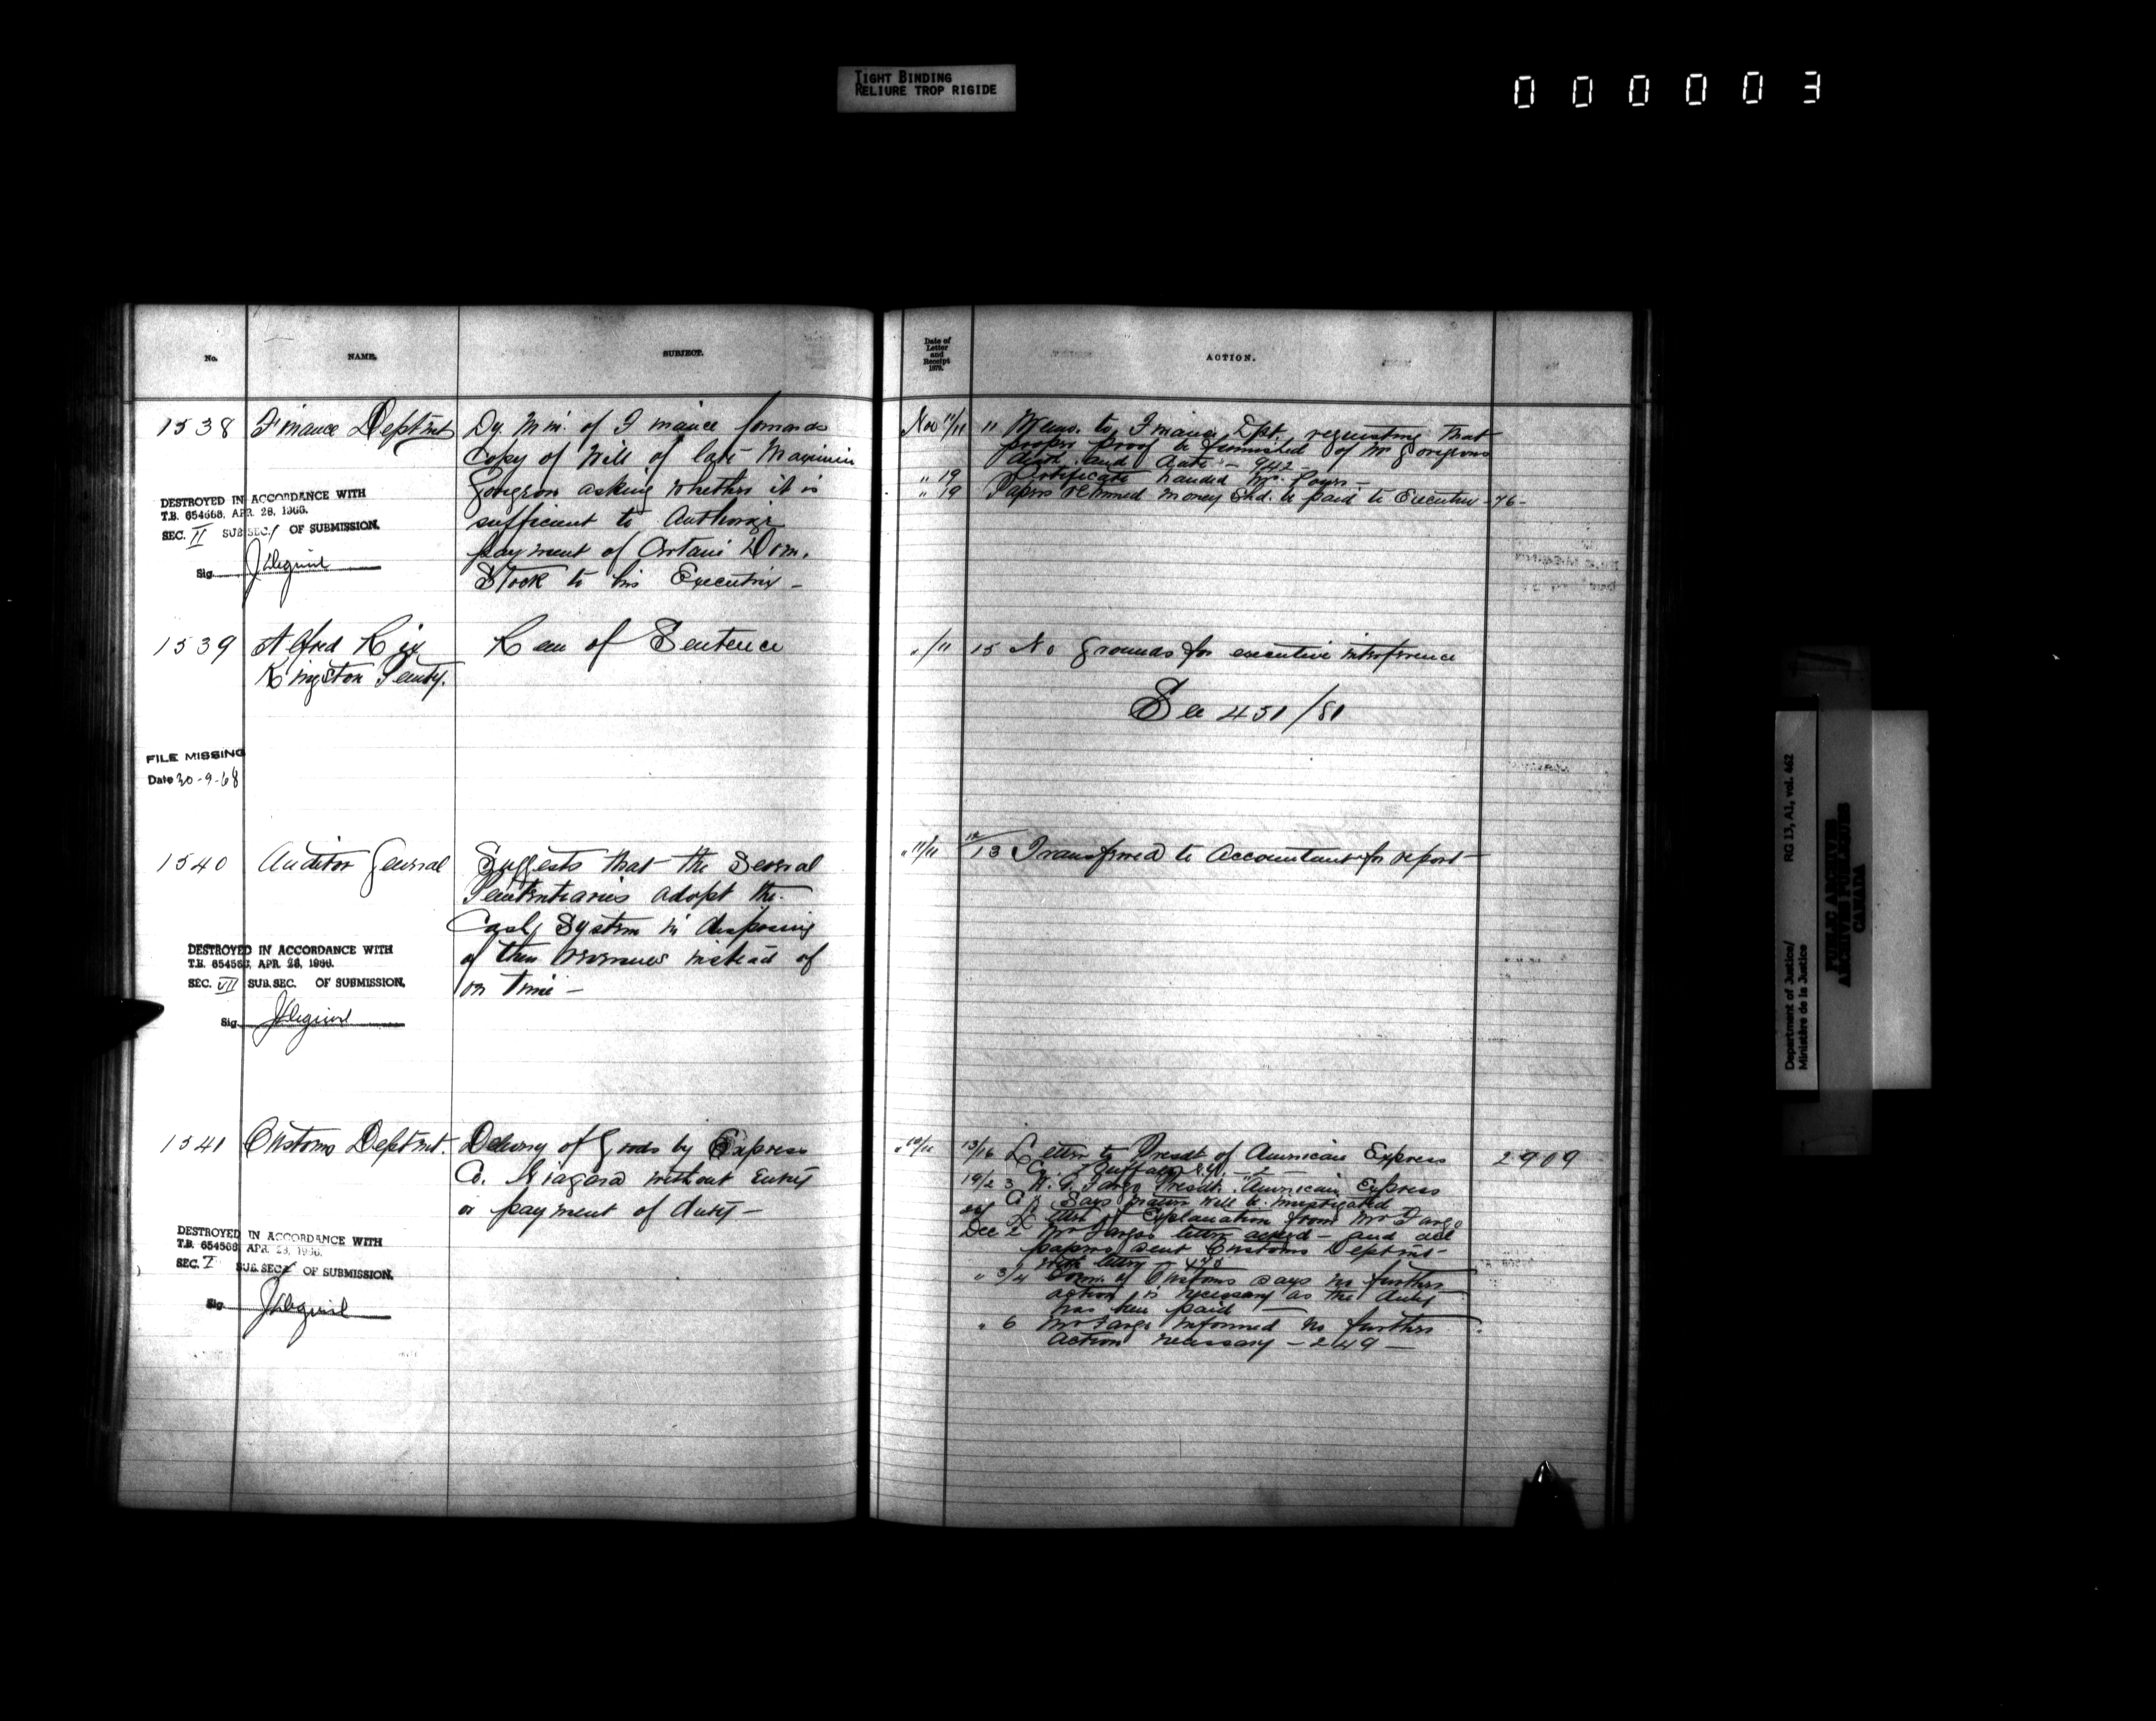 TIGHT BINDING
RELIURE TROP RIGIDE
000003
No.
NAME.
SUBJECT.
Date of
Letter
and
Receipt
1879.
ACTION.
1538
Finance Deptmt
Dy. Min. of Finance forwards
Copy of Will of late Maximin
Gongeon asking whether it is
sufficient to Authorize
payment of Certain Dom.
Stock to his Executrix -
DESTROYED IN ACCORDANCE WITH
T.B. 654568, APR. 28, 1966.
SEC. II SUB SEC. 1 OF SUBMISSION.
Sig.
Nov 11/11
11 Memo. to Finance Dpt. requesting that
proper proof be furnished of Mr Gongeons
death and date - 942 -
" 19 Certificate handed Mr. Power -
" 19 Papers returned money shd. be paid to Executrix - 76 -
1539
Alfred Rix
Kingston Penty.
Rem of Sentence
" /11
15 No grounds for executive interference
See 451/81
FILE MISSING
Date 30-9-68
1540
Auditor General
Suggests that the Several
Penitentiaries adopt the
Cash System in disposing
of their revenues instead of
on time -
DESTROYED IN ACCORDANCE WITH
T.B. 654568, APR. 28, 1966.
SEC. VII SUB. SEC. OF SUBMISSION.
Sig.
" 11/11
12/13 Transferred to Accountant for report
1541
Customs Deptmt.
Delivery of Goods by Express
Co. Niagara without entry
or payment of duty -
DESTROYED IN ACCORDANCE WITH
T.B. 654568 APR. 28, 1966.
SEC. I SUB. SEC. OF SUBMISSION.
Sig.
" 10/11
13/16 Letter to Presdt of American Express
Co. Buffalo N.Y. - 2 -
19/23 W. G. Fargo Presdt. American Express
Co. Says matter will be investigated
Letter of Explanation from Mr Fargo
Dec 2 Mr Fargos letter acked - and all
papers sent Customs Deptmt -
with letter - 470
" 3/4 Com. of Customs says no further
action is necessary as the duty
has been paid -
" 6 Mr Fargo informed no further
action necessary - 249 -
2909
Department of Justice/
Ministère de la Justice
RG 13, A1, vol. 462
PUBLIC ARCHIVES
ARCHIVES PUBLIQUES
CANADA